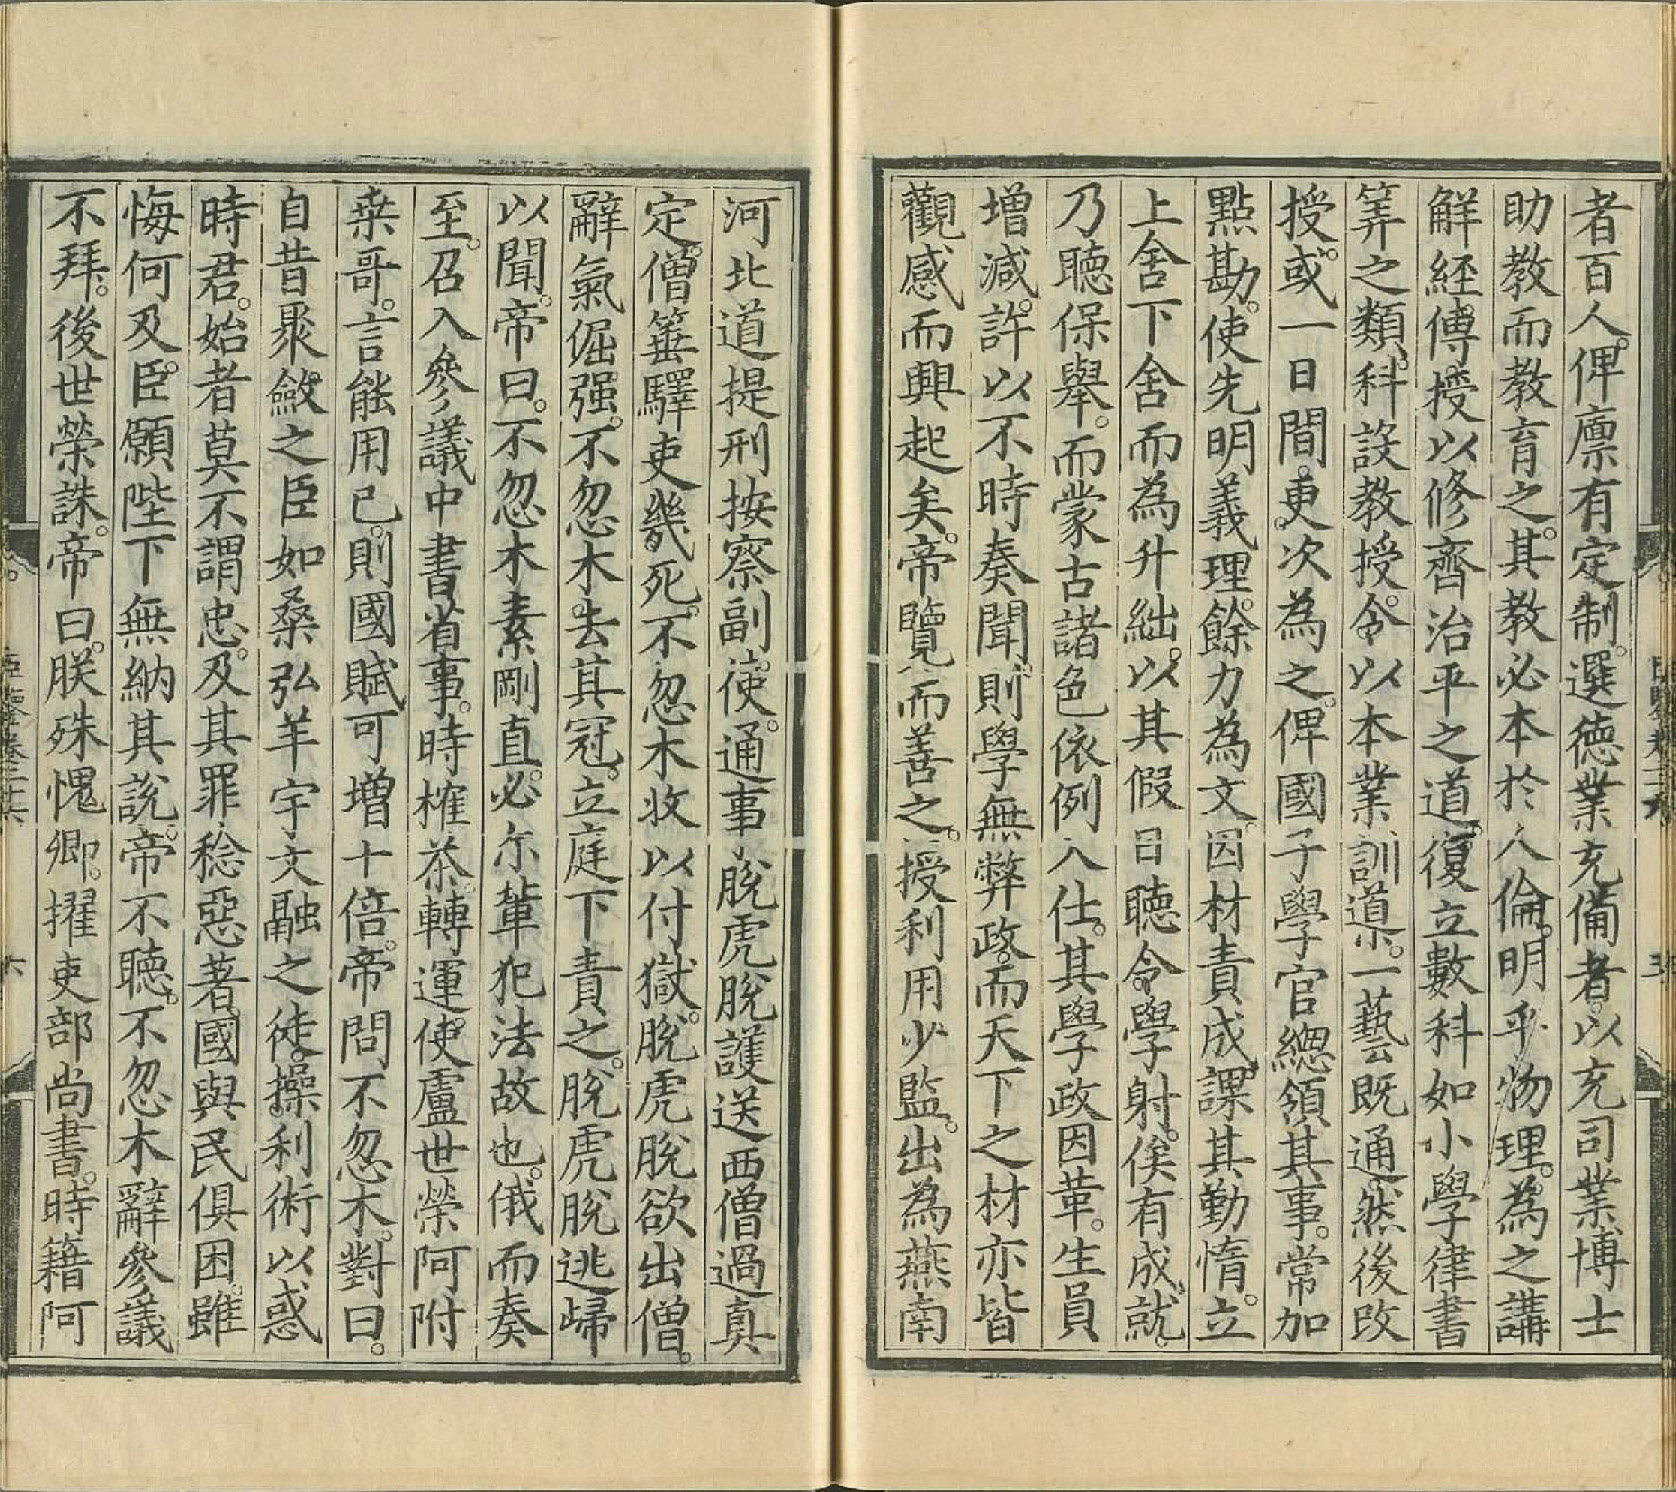 者百人。俾廪有定制。選德業充備者。以充司業博士
助教而教育之。其教必本於人倫。明乎物理。為之講
解經傳。授以修齊治平之道。復立數科如小學律書
筭之類。科設教授。令以本業訓導。一藝既通。然後改
授。或一日間。更次為之。俾國子學官總領其事。常加
點勘。使先明義理。餘力為文。因材責成。課其勤惰。立
上舍下舍而為升絀。以其假日聽令學射。俟有成就。
乃聽保舉。而蒙古諸色依例入仕。其學政因革。生員
增減。許以不時奏聞。則學無弊政。而天下之材亦皆
觀感而興起矣。帝覽而善之。授利用少監。出為燕南
河北道提刑按察副使。通事脫虎脫護送西僧過真
定。僧箠驛吏幾死。不忽木收以付獄。脫虎脫欲出僧。
辭氣倔强。不忽木去其冠。立庭下責之。脫虎脫逃歸
以聞。帝曰。不忽木素剛直。必尔輩犯法故也。俄而奏
至。召入參議中書省事。時榷茶轉運使盧世榮阿附
桒哥。言能用已。則國賦可增十倍。帝問不忽木。對曰。
自昔聚斂之臣如桑弘羊宇文融之徒。操利術以惑
時君。始者莫不謂忠。及其罪稔惡著。國與民俱困。雖
悔何及。臣願陛下無納其說。帝不聽。不忽木辭參議
不拜。後世榮誅。帝曰。朕殊愧卿。擢吏部尚書。時籍阿
臣鑒卷三十六
六